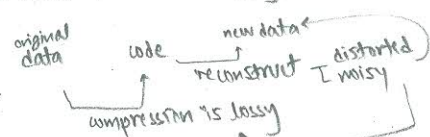 original data
code
new data
reconstruct
distorted
I noisy
compression is lossy